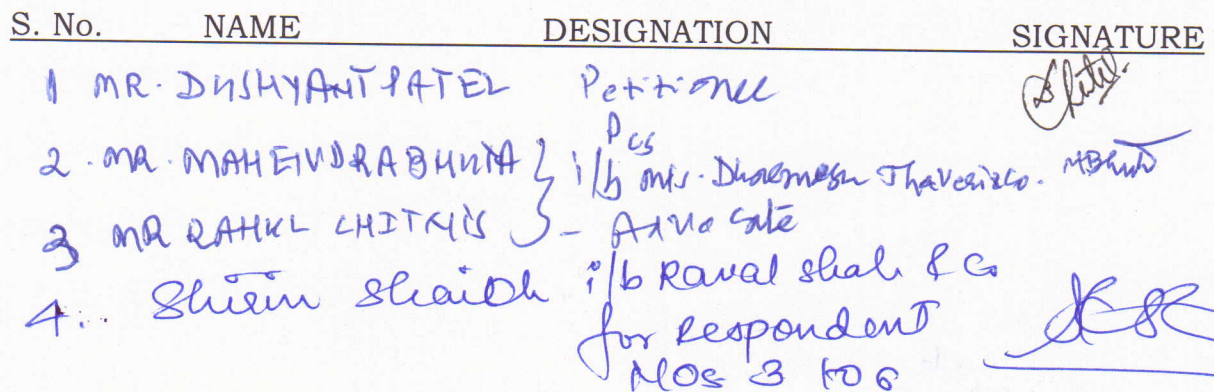 S. No. NAME DESIGNATION SIGNATURE
1 MR. DUSHYANT PATEL Petitioner
PCS
2. MR. MAHENDRA BHUTA } i/b M/s. Dharmesh Zaveri & Co.
3 MR RAHUL CHITNIS } - Advocate
4. Shirin Shaikh i/b Raval Shah & Co
for Respondent
NOs 3 to 6